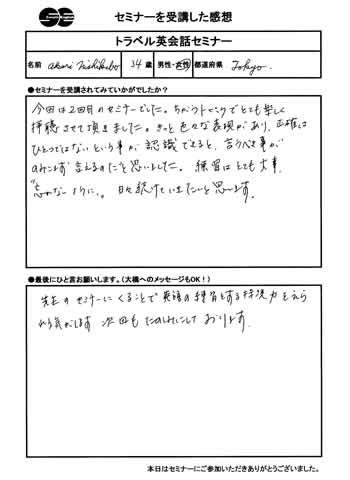 セミナーを受講した感想
トラベル英会話セミナー
名前 Akari Nishikubo 34歳 男性・女性 都道府県 Tokyo.
●セミナーを受講されてみていかがでしたか?
今回は2回目のセミナーでした。ちがうトピックでとても楽しく
拝聴させて頂きました。きっと色々な表現があり、正確は
ひとつではないという事が認識できると、言うべき事が
のみこまず言えるのだと思いました。練習はとても大事、
"忘れないように"、日々続けていきたいと思います。
●最後にひと言お願いします。(大橋へのメッセージもOK!)
先生のセミナーにくることで英語の練習をする持続力をもら
う気がします。次回もたのしみにしております。
本日はセミナーにご参加いただきありがとうございました。